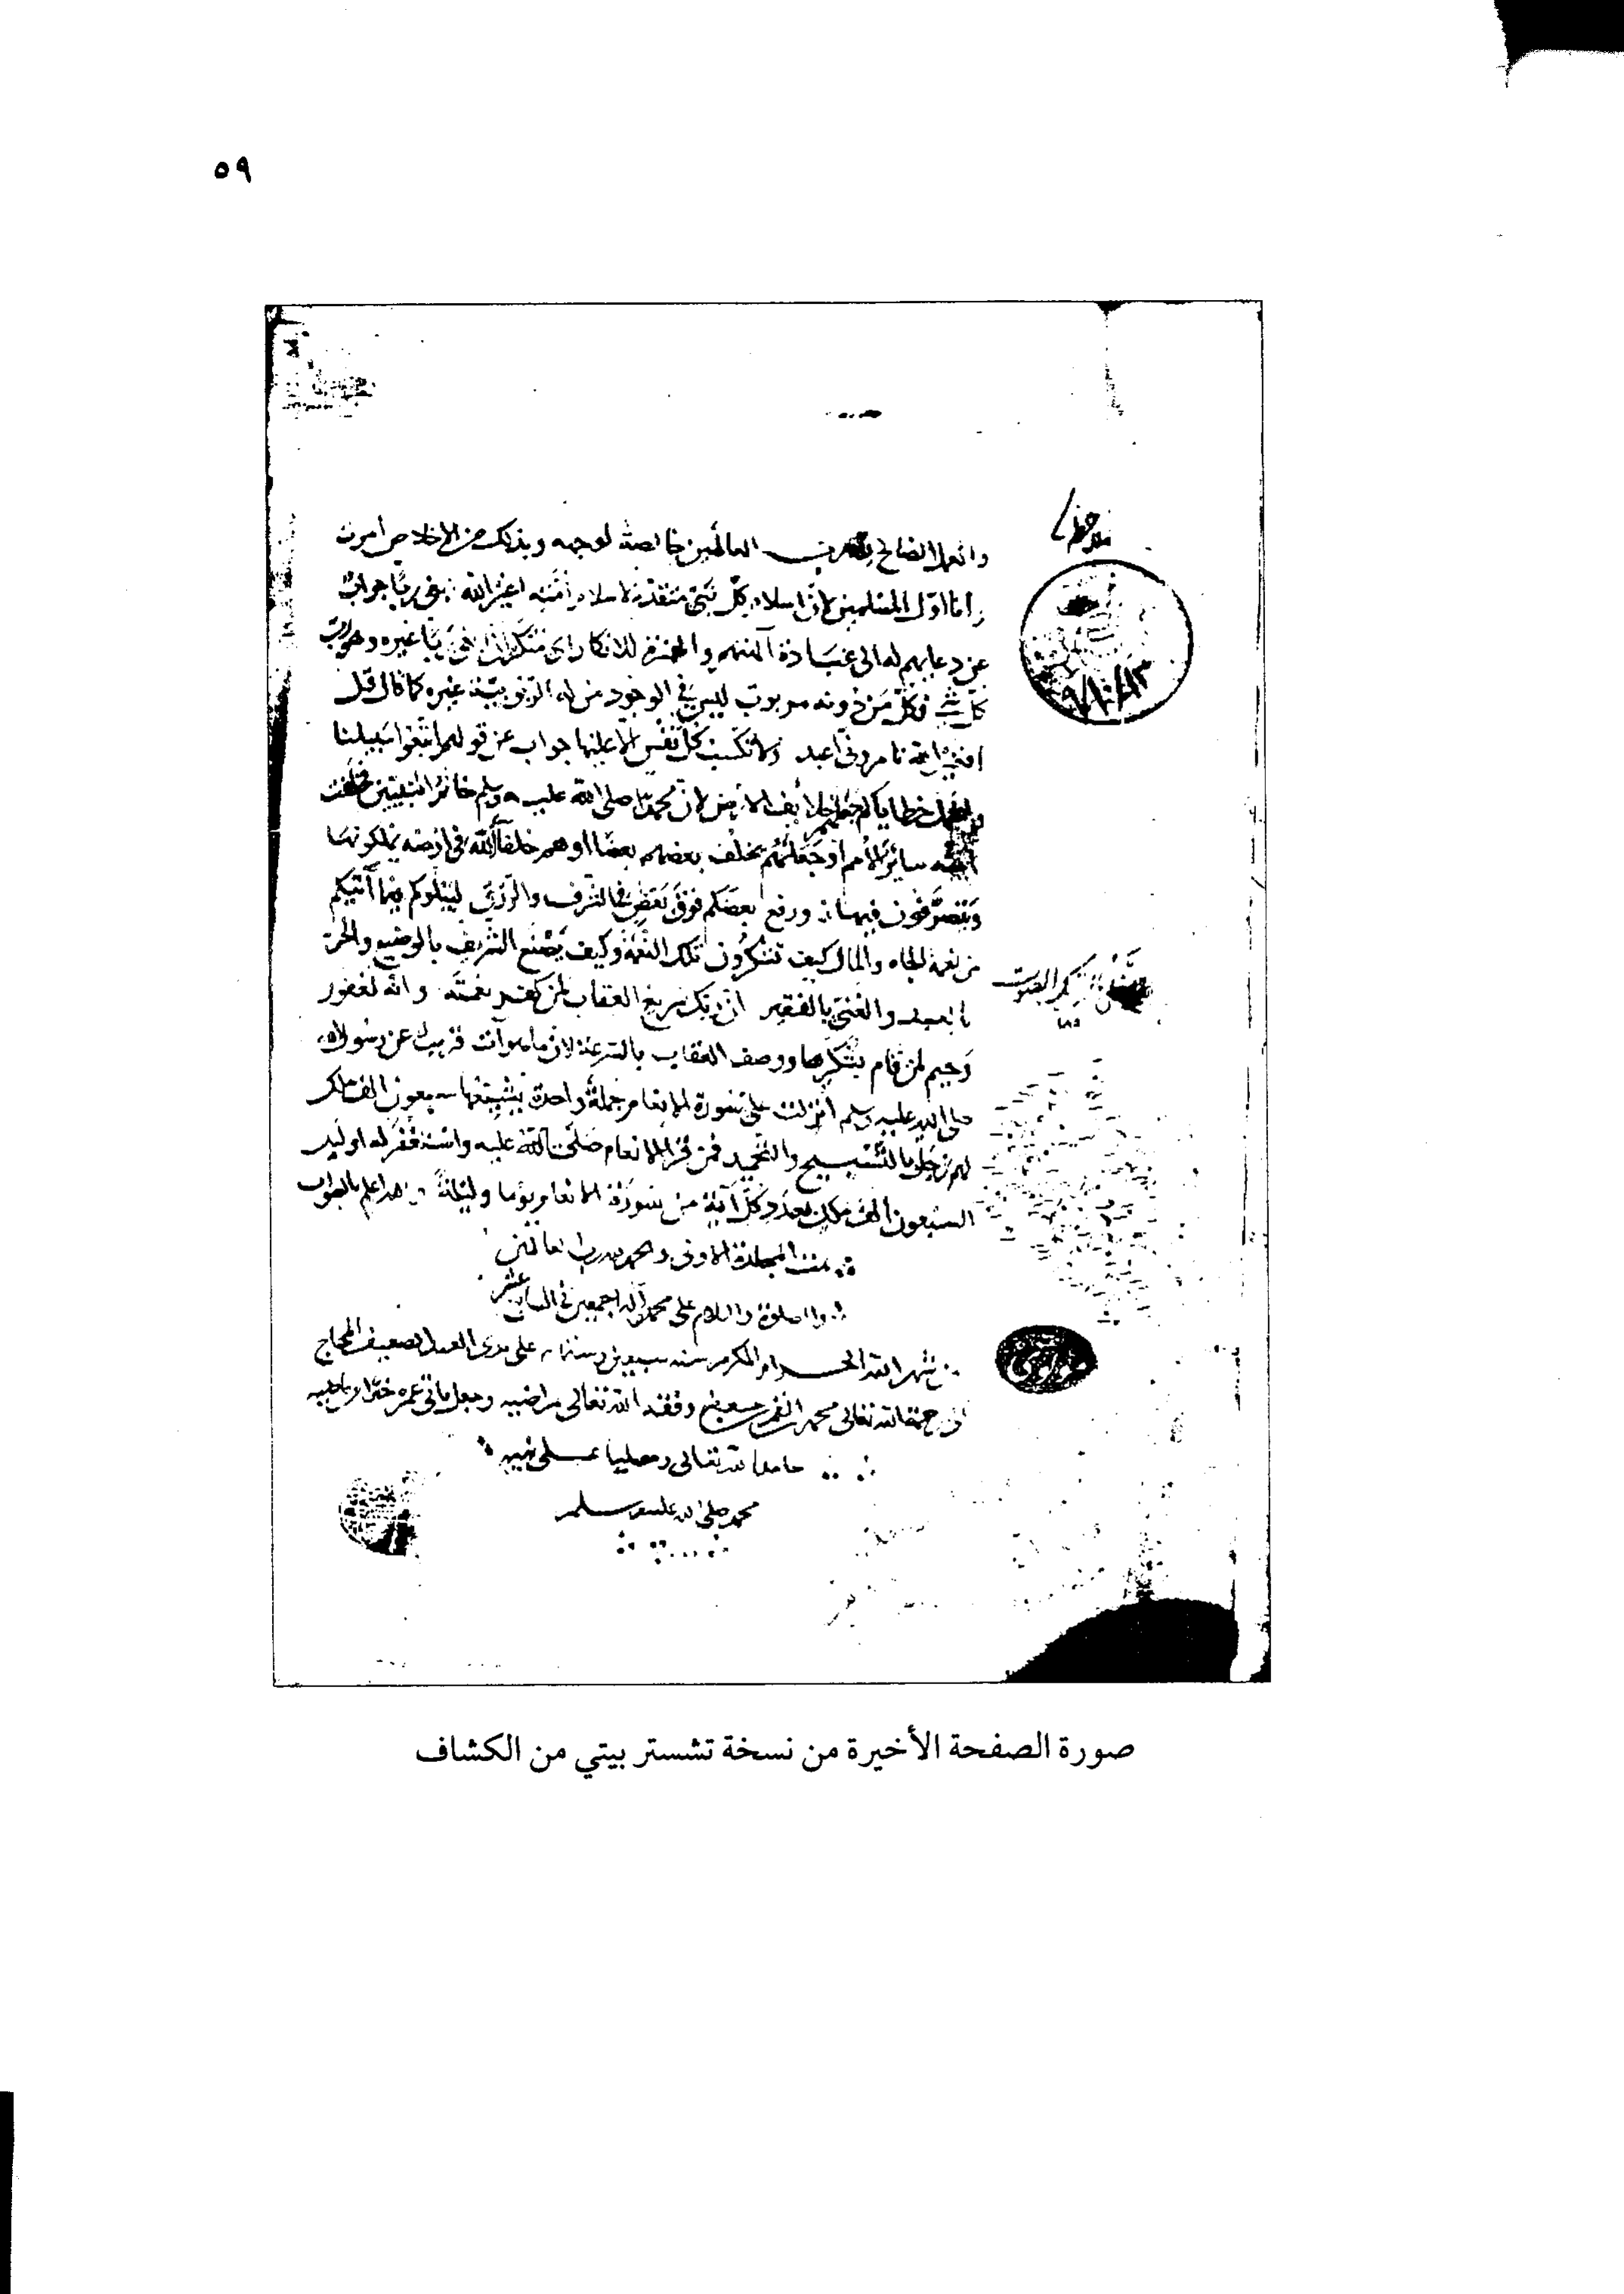 ٥٩
والعمل الصالح لله رب العالمين خالصة لوجهه وبذلك من الاخلاص أمرت
وانا اوّل المسلمين لان اسلام كل نبي متقدم لاسلام امّته اغير الله ابغي ربّا جواب
عن دعايهم له الى عبادة آلهتهم والهمزة للانكار اى منكر ان ابغي ربّا غيره وهو ربّ
كل شئ فكلّ من دونه مربوب ليس في الوجود من له الربوبيّة غيره كما قال قل
افغير الله تامرونى اعبد ولا تكسب كل نفس الا عليها جواب عن قولهم اتبعوا سبيلنا
ولنحمل خطاياكم جعلكم خلائف الارض لان محمدا صلى الله عليه وسلم خاتم النبيين فخلفت
امّته سائر الأمم او جعلهم يخلف بعضهم بعضا او هم خلفاء الله في ارضه يملكونها
ويتصرّفون فيها ورفع بعضكم فوق بعض في الشرف والرزق ليبلوكم فيما آتيكم
من نعمة الجاه والمال كيف تشكرون تلك النعمة وكيف يصنع الشريف بالوضيع والحرّ
بالعبد والغنيّ بالفقير ان ربّك سريع العقاب لمن كفر نعمته وانه لغفور
رحيم لمن قام بشكرها ووصف العقاب بالسرعة لان ما هو آت قريب عن رسول الله
صلى الله عليه وسلم انزلت علىّ سورة الانعام جملة واحدة يشيّعها سبعون الف ملك
لهم زجل بالتسبيح والتحميد فمن قرأ الانعام صلّى الله عليه واستغفر له اوليك
السبعون الف ملك بعدد كل آية من سورة الانعام يوما وليلة والله اعلم بالصواب
تمت المجلدة الاولى والحمد لله رب العالمين
والصلوة والسلام على محمد وآله اجمعين في عشر
من شهر الله الحرام المكرم سنه سبعين على يدى العبد الضعيف المحتاج
الى رحمة الله تعالى محمد بن وفقه الله تعالى مراضيه وجعل باقي عمره خيرا من ماضيه
حامدا لله تعالى ومصليا على نبيه
محمد صلى الله عليه وسلم
صورة الصفحة الأخيرة من نسخة تشستر بيتي من الكشاف